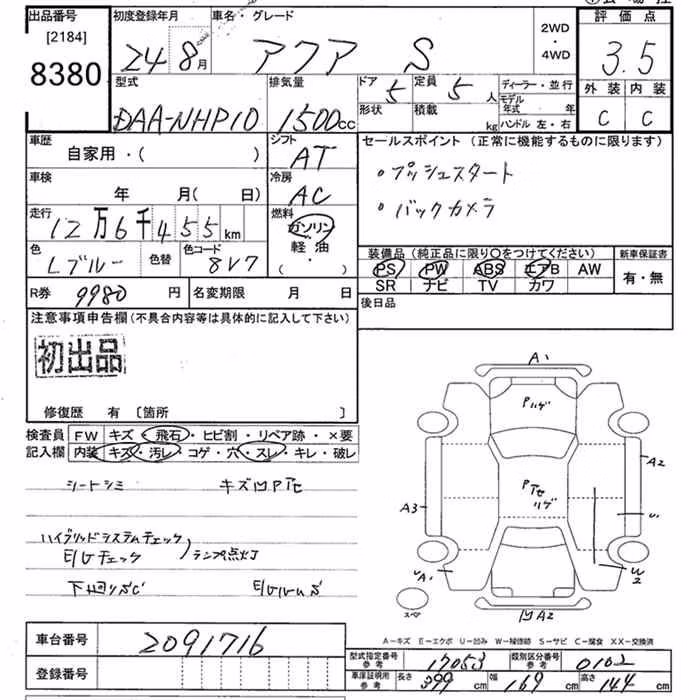 出品番号 [2184] 8380
初度登録年月 24 8月
車名・グレード アクア S
2WD・4WD
評価点 3.5
外装 内装
C C
型式 DAA-NHP10
排気量 1500cc
ドア 5 定員 5人
形状 積載 kg
ディーラー・並行
モデル年式 年
ハンドル 左・右
車歴 自家用・( )
シフト AT
セールスポイント (正常に機能するものに限ります)
・プッシュスタート
・バックカメラ
車検 年 月( 日)
冷房 AC
走行 12万6千455km
燃料 ガソリン・軽・油・( )
色 Lブルー 色替 色コード 8V7
装備品 (純正品に限り○をつけてください) 新車保証書
PS PW ABS エアB AW 有・無
SR ナビ TV カワ
R券 9980円 名変期限 月 日
後日品
注意事項申告欄(不具合内容等は具体的に記入して下さい)
初出品
修復歴 有 〔箇所 〕
検査員記入欄 FW キズ・飛石・ヒビ割・リペア跡・×要
内装 キズ・汚レ・コゲ・穴・スレ・キレ・破レ
シートシミ キズ凹Pアセ
ハイブリッドシステムチェック
E/Gチェック ランプ点灯
下回りサビ
A1
Pハゲ
A2
A3
Pアセ
ハゲ
U1
A1
W2
スペア
凹A2
A-キズ E-エクボ U-凹み W-補修跡 S-サビ C-腐食 XX-交換済
車台番号 2091716
登録番号
型式指定番号 参考 17053 類別区分番号 参考 0102
車庫証明用 参考 長さ 399cm 幅 169cm 高さ 144cm